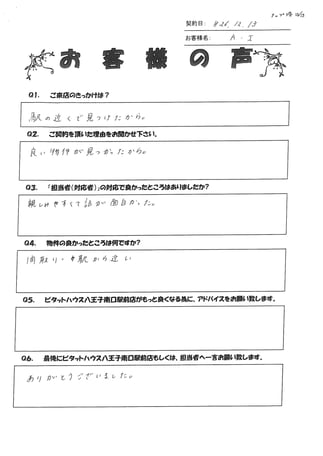 契約日: H26.12.13
お客様名: A・I
お客様の声
Q1. ご来店のきっかけは?
駅の近くで見つけたから。
Q2. ご契約を頂いた理由をお聞かせ下さい。
良い物件が見つかったから。
Q3. 「担当者(対応者)」の対応で良かったところはありましたか?
親しみやすくて話が面白かった。
Q4. 物件の良かったところは何ですか?
間取り・駅から近い
Q5. ピタットハウス八王子南口駅前店がもっと良くなる為に、アドバイスをお願い致します。
Q6. 最後にピタットハウス八王子南口駅前店もしくは、担当者へ一言お願い致します。
ありがとうございました。